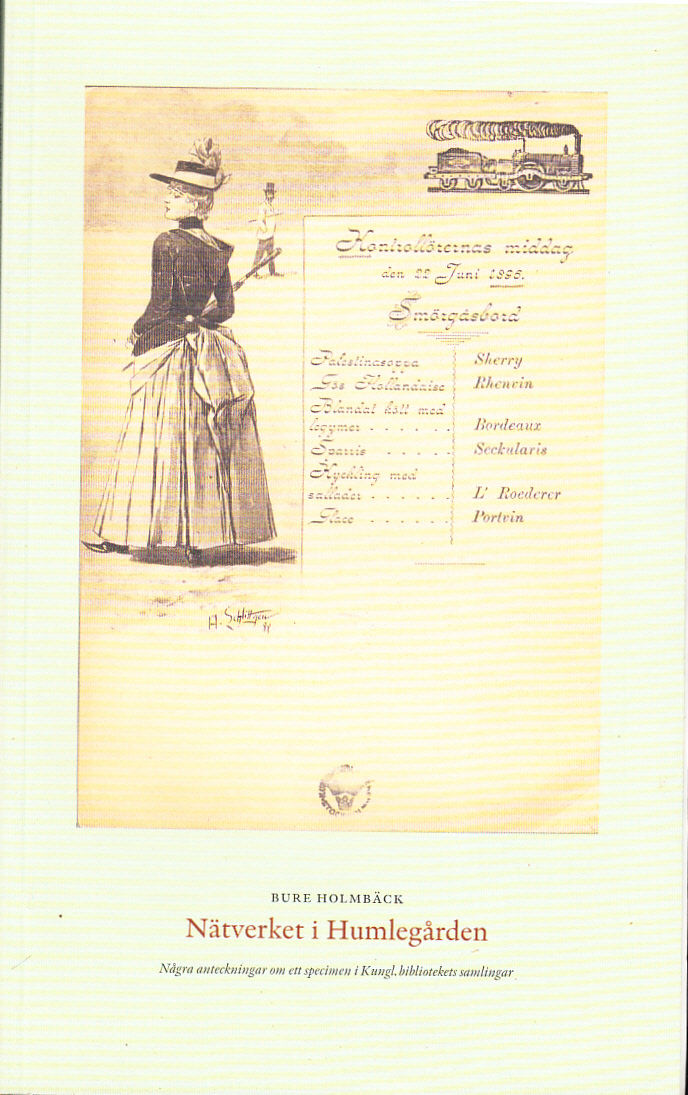 Kontrollörernas middag
den 22 Juni 1896.
Smörgåsbord
Palestinasoppa
Sherry
Gös Hollandaise
Rhenvin
Blandat kött med
legymer . . . . . .
Bordeaux
Sparris . . . . .
Seckularis
Kyckling med
sallader . . . . . .
L' Roederer
Glace . . . . . .
Portvin
H. Schlittgen
BURE HOLMBÄCK
Nätverket i Humlegården
Några anteckningar om ett specimen i Kungl. bibliotekets samlingar